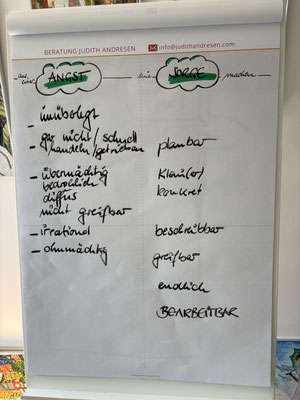 BERATUNG JUDITH ANDRESEN
info@judithandresen.com
aus einer ANGST eine SORGE machen
- unüberlegt
- gar nicht / schnell
handeln / getrieben
- übermächtig
bedrohlich
diffus
nicht greifbar
- irrational
- ohnmächtig
planbar
klar(er)
konkret
beschreibbar
greifbar
endlich
BEARBEITBAR